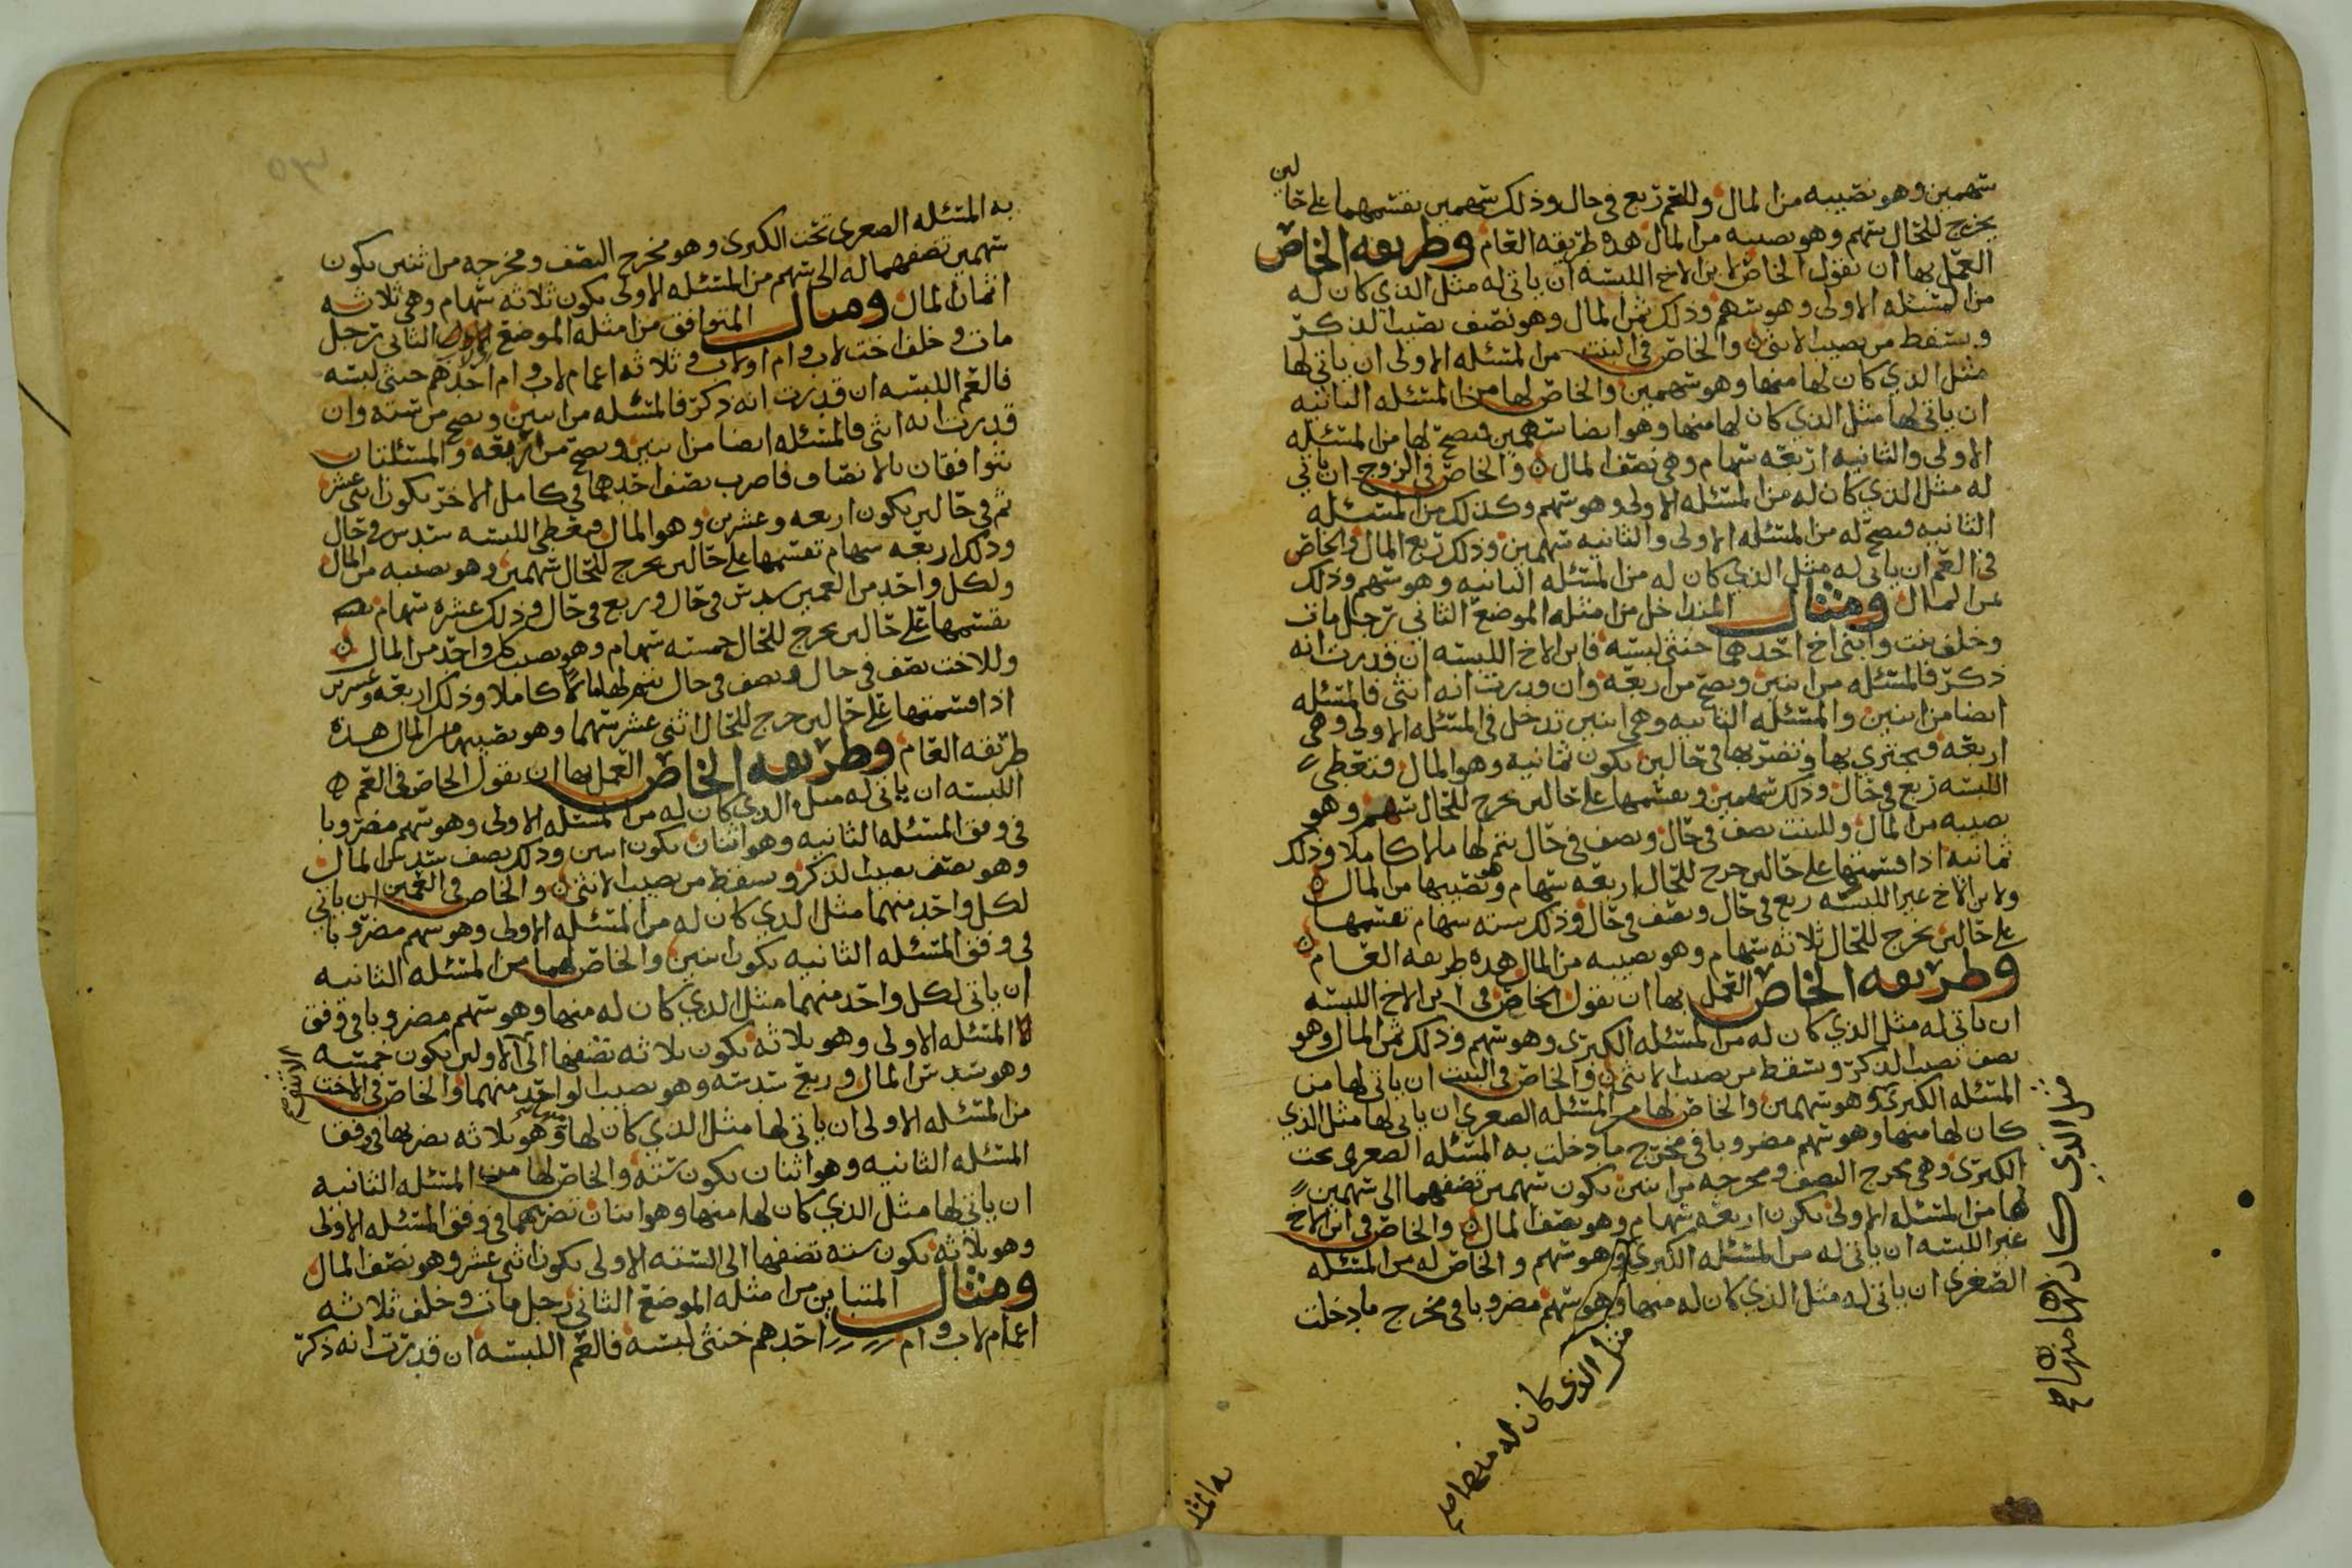 سهمين وهو نصيبه من المال وللعم ربع في حال وذلك سهمين نقسمهما على حالين
يخرج للحال سهم وهو نصيبه من المال هذه طريقه العام وطريقه الخاص
العمل بها ان نقول الخاص لابن الاخ اللبسه ان ياتي له مثل الذي كان له
من المسئله الاولى وهو سهم وذلك ثمن المال وهو نصف نصيب الذكر
ويسقط من نصيب الانثى والخاص في البنت من المسئله الاولى ان ياتي لها
مثل الذي كان لها منها وهو سهمين والخاص لها من المسئله الثانيه
ان ياتي لها مثل الذي كان لها منها وهو ايضا سهمين فيصح لها من المسئله
الاولى والثانيه اربعه سهام وهي نصف المال والخاص في الزوج ان ياتي
له مثل الذي كان له من المسئله الاولى وهو سهم وكذلك من المسئله
الثانيه فيصح له من المسئله الاولى والثانيه سهمين وذلك ربع المال والخاص
في العم ان ياتي له مثل الذي كان له من المسئله الثانيه وهو سهم وذلك
ثمن المال ومثال المتداخل من امثله الموضع الثاني رجل مات
وخلف بنت وابني اخ احدهما خنثى لبسه فابن الاخ اللبسه ان قدرت انه
ذكر فالمسئله من اثنين وتصح من اربعه وان قدرت انه انثى فالمسئله
ايضا من اثنين والمسئله الثانيه وهي اثنين تدخل في المسئله الاولى وهي
اربعه فيجتزي بها وتضربها في حالين يكون ثمانيه وهو المال فتعطي
اللبسه ربع في حال وذلك سهمين ونقسمها على حالين يخرج للحال سهم وهو
نصيبه من المال وللبنت نصف في حال ونصف في حال يتم لها مالا كاملا وذلك
ثمانيه اذا قسمتها على حالين خرج للحال اربعه سهام وهو نصيبها من المال
ولابن الاخ غير اللبسه ربع في حال ونصف في حال وذلك سته سهام نقسمها
على حالين يخرج للحال ثلاثه سهام وهو نصيبه من المال هذه طريقه العام
وطريقه الخاص العمل بها ان نقول الخاص في ابن الاخ اللبسه
ان ياتي له مثل الذي كان له من المسئله الكبرى وهو سهم وذلك ثمن المال وهو
نصف نصيب الذكر ويسقط من نصيب الانثى والخاص في البنت ان ياتي لها من
المسئله الكبرى وهو سهمين والخاص لها من المسئله الصغرى ان ياتي لها مثل الذي
كان لها منها وهو سهم مضروبا في مخرج ما دخلت به المسئله الصغرى تحت
الكبرى وهي مخرج النصف ومخرجه من اثنين يكون سهمين تضفهما الى سهمين
لها من المسئله الاولى يكون اربعه سهام وهو نصف المال والخاص في ابن الاخ
غير اللبسه ان ياتي له من المسئله الكبرى وهو سهم والخاص له من المسئله
الصغرى ان ياتي له مثل الذي كان له منها وهو سهم مضروبا في مخرج ما دخلت
مثل الذي كان لها منها صح
مثل الذي كان له منها صح
به المسئله
به المسئله الصغرى تحت الكبرى وهو مخرج النصف ومخرجه من اثنين يكون
سهمين تضفهما له الى سهم من المسئله الاولى يكون ثلاثه سهام وهي ثلاثه
اثمان المال ومثال المتوافق من امثله الموضع الثاني رجل
مات وخلف اخت لاب وام او لاب وثلاثه اعمام لاب وام احدهم خنثى لبسه
فالعم اللبسه ان قدرت انه ذكر فالمسئله من اثنين وتصح من سته وان
قدرت انه انثى فالمسئله ايضا من اثنين وتصح من اربعه والمسئلتان
يتوافقان بالانصاف فاضرب نصف احدهما في كامل الاخر يكون اثني عشر
ثم في حالين يكون اربعه وعشرين وهو المال فيعطى اللبسه سدس في حال
وذلك اربعه سهام تقسمها على حالين يخرج للحال سهمين وهو نصيبه من المال
ولكل واحد من العمين سدس في حال وربع في حال وذلك عشره سهام
نقسمها على حالين يخرج للحال خمسه سهام وهو نصيب كل واحد من المال
وللاخت نصف في حال ونصف في حال يتم لها مالا كاملا وذلك اربعه وعشرين
اذا قسمتها على حالين خرج للحال اثني عشر سهما وهو نصيبها من المال هذه
طريقه العام وطريقه الخاص العمل بها ان نقول الخاص في العم
اللبسه ان ياتي له مثل الذي كان له من المسئله الاولى وهو سهم مضروبا
في وفق المسئله الثانيه وهو اثنان يكون اثنين وذلك نصف سدس المال
وهو نصف نصيب الذكر ويسقط من نصيب الانثى والخاص في العمين ان ياتي
لكل واحد منهما مثل الذي كان له من المسئله الاولى وهو سهم مضروبا
في وفق المسئله الثانيه يكون اثنين والخاص لهما من المسئله الثانيه
ان ياتي لكل واحد منهما مثل الذي كان له منها وهو سهم مضروبا في وفق
المسئله الاولى وهو ثلاثه يكون ثلاثه تضفها الى الاولين يكون خمسه
وهو سدس المال وربع سدسه وهو نصيب الواحد منهما والخاص في الاخت
من المسئله الاولى ان ياتي لها مثل الذي كان لها وهو ثلاثه نضربها في وفق
المسئله الثانيه وهو اثنان يكون سته والخاص لها من المسئله الثانيه
ان ياتي لها مثل الذي كان لها منها وهو اثنان نضربهما في وفق المسئله الاولى
وهو ثلاثه يكون سته تضفها الى السته الاولى يكون اثني عشر وهو نصف المال
ومثال المتباين من امثله الموضع الثاني رجل مات وخلف ثلاثه
اعمام لاب وام احدهم خنثى لبسه فالعم اللبسه ان قدرت انه ذكر